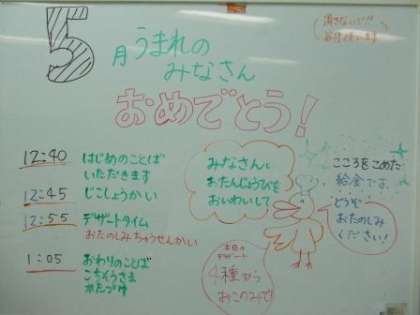 5
月うまれの
みなさん
おめでとう!
消さないで!!
12:40 はじめのことば
いただきます
12:45 じこしょうかい
12:55 デザートタイム
おたのしみちゅうせんかい
1:05 おわりのことば
ごちそうさま
かたづけ
みなさんと
おたんじょうびを
おいわいして
こころをこめた
給食では、
どうぞ
おたのしみ
ください!
本日の
デザート
4種から
おこのみで!